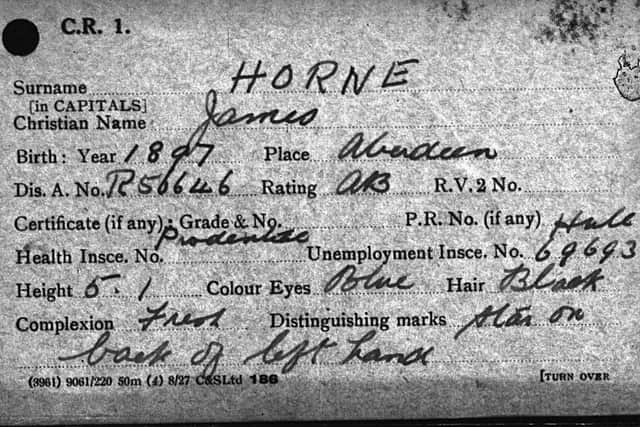 C.R. 1.
Surname HORNE
[in CAPITALS]
Christian Name James
Birth: Year 1897 Place Aberdeen
Dis. A. No. R56646 Rating AB R.V.2 No.
Certificate (if any): Grade & No. P.R. No. (if any) Hull
Health Insce. No. Prudential Unemployment Insce. No. 69693
Height 5.1 Colour Eyes Blue Hair Black
Complexion Fresh Distinguishing marks Star on
back of left hand
(3961) 9061/220 50m (4) 8/27 C&SLtd 186 [TURN OVER